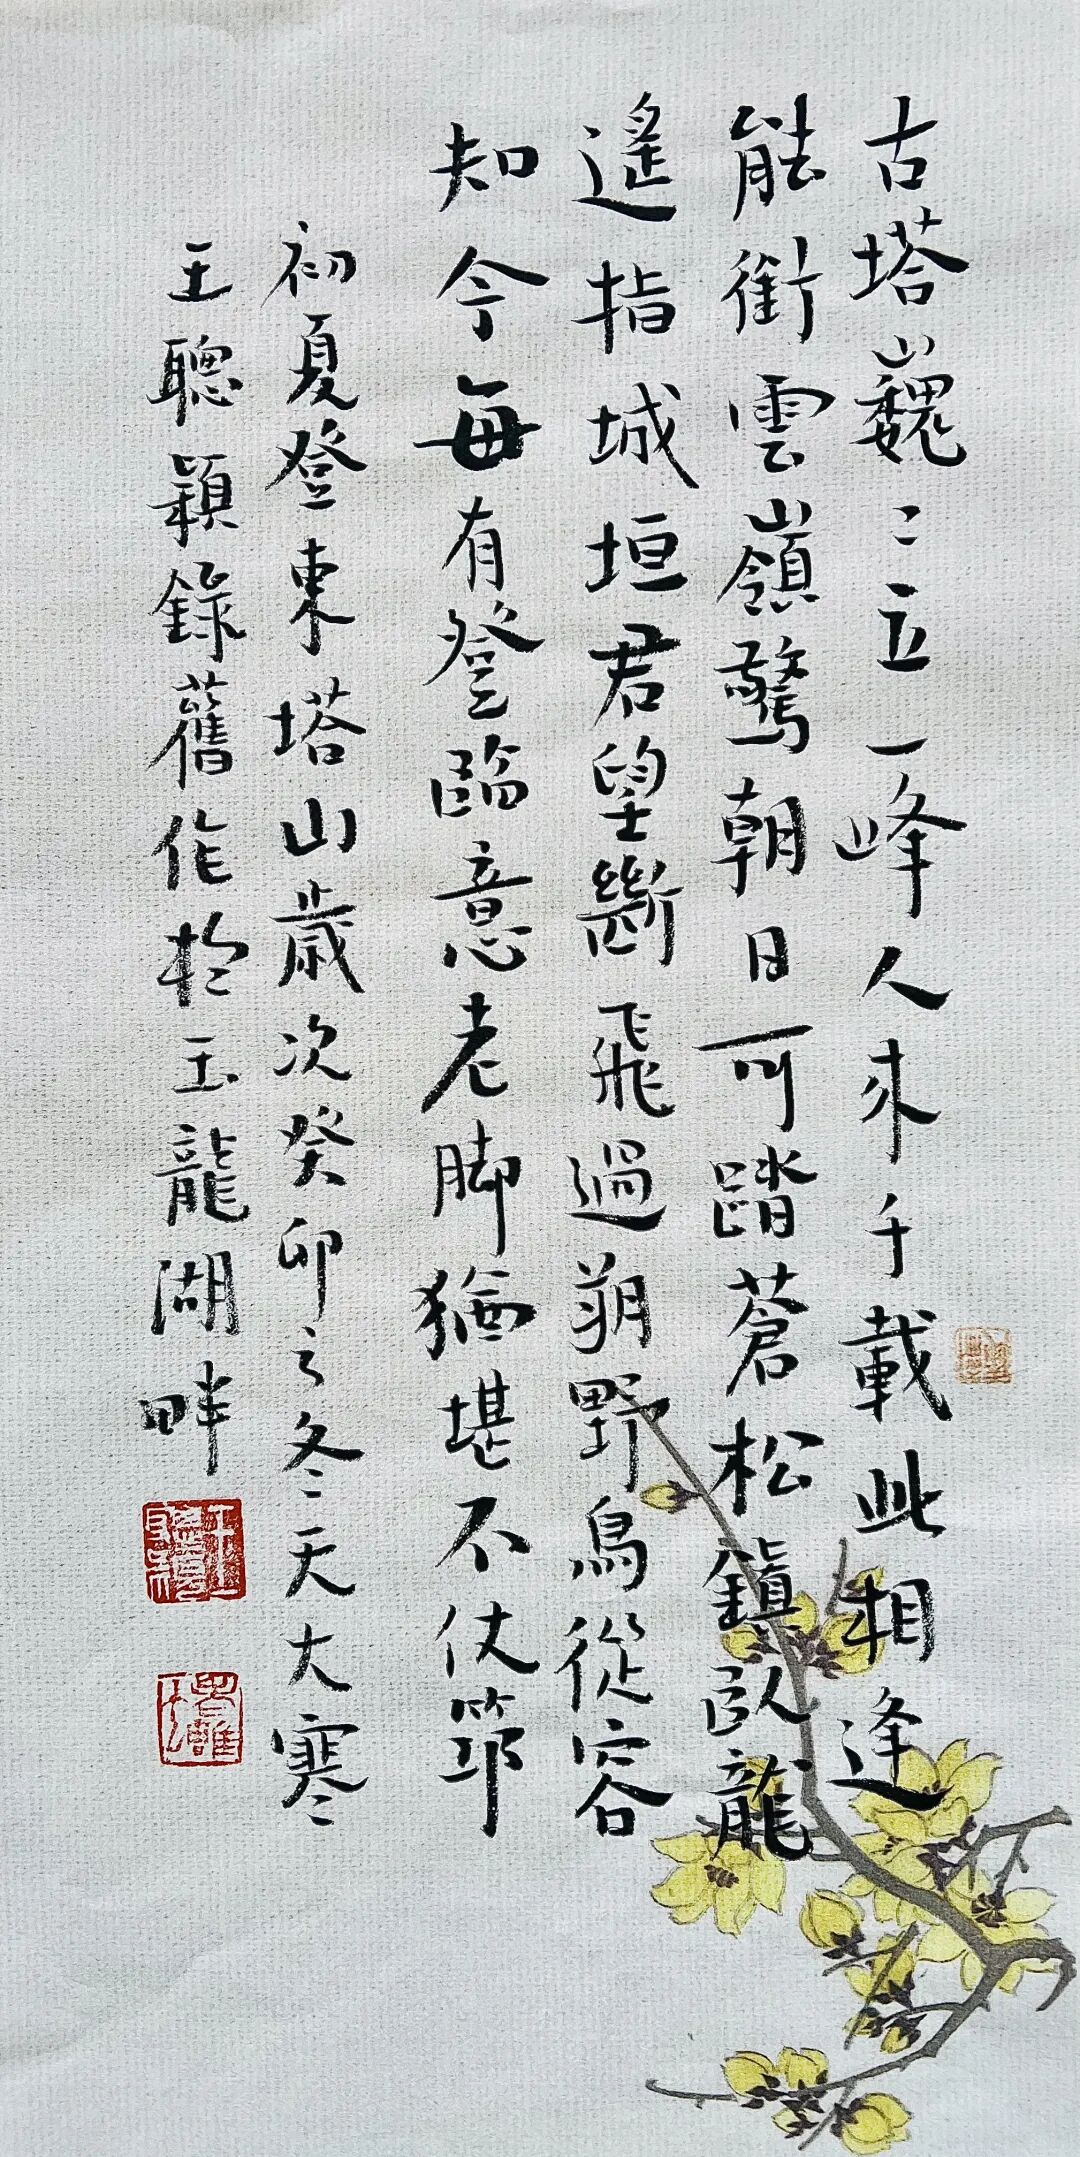 古塔巍〻立一峰人來千載此相逢
能銜雲嶺驚朝日可踏蒼松鎮臥龍
遙指城垣君望斷飛過蒴野鳥從容
知今每有登臨意老脚猶堪不仗筇
初夏登東塔山歲次癸卯之冬天大寒
王聰穎錄舊作於玉龍湖畔